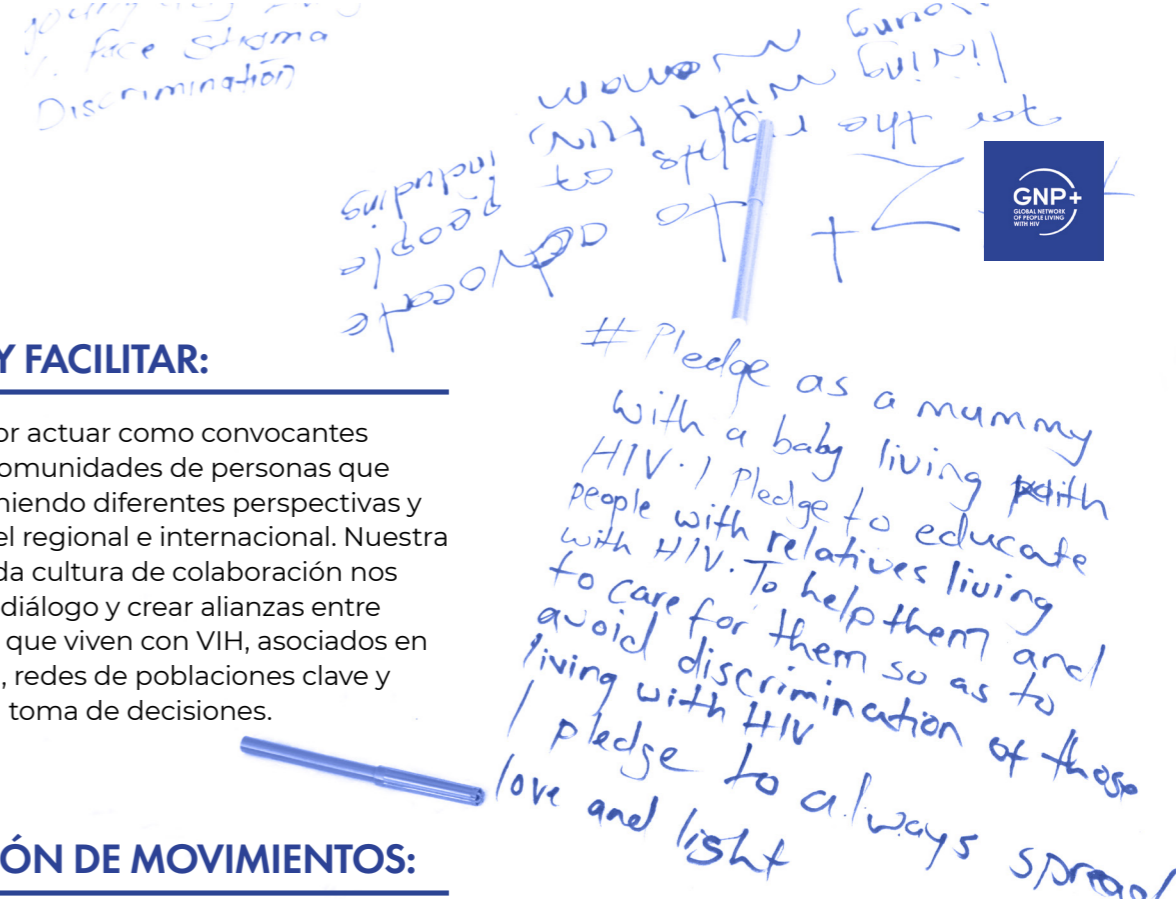 face Stigma
Discrimination
to advocate
for the rights of people
living with HIV, including
young woman living
GNP+
GLOBAL NETWORK
OF PEOPLE LIVING
WITH HIV
Y FACILITAR:
or actuar como convocantes
omunidades de personas que
niendo diferentes perspectivas y
el regional e internacional. Nuestra
da cultura de colaboración nos
diálogo y crear alianzas entre
que viven con VIH, asociados en
, redes de poblaciones clave y
toma de decisiones.
ÓN DE MOVIMIENTOS:
# Pledge as a mummy
with a baby living with
HIV. I Pledge to educate
people with relatives living
with HIV. To help them and
to care for them so as to
avoid discrimination of those
living with HIV
I pledge to always spread
love and light